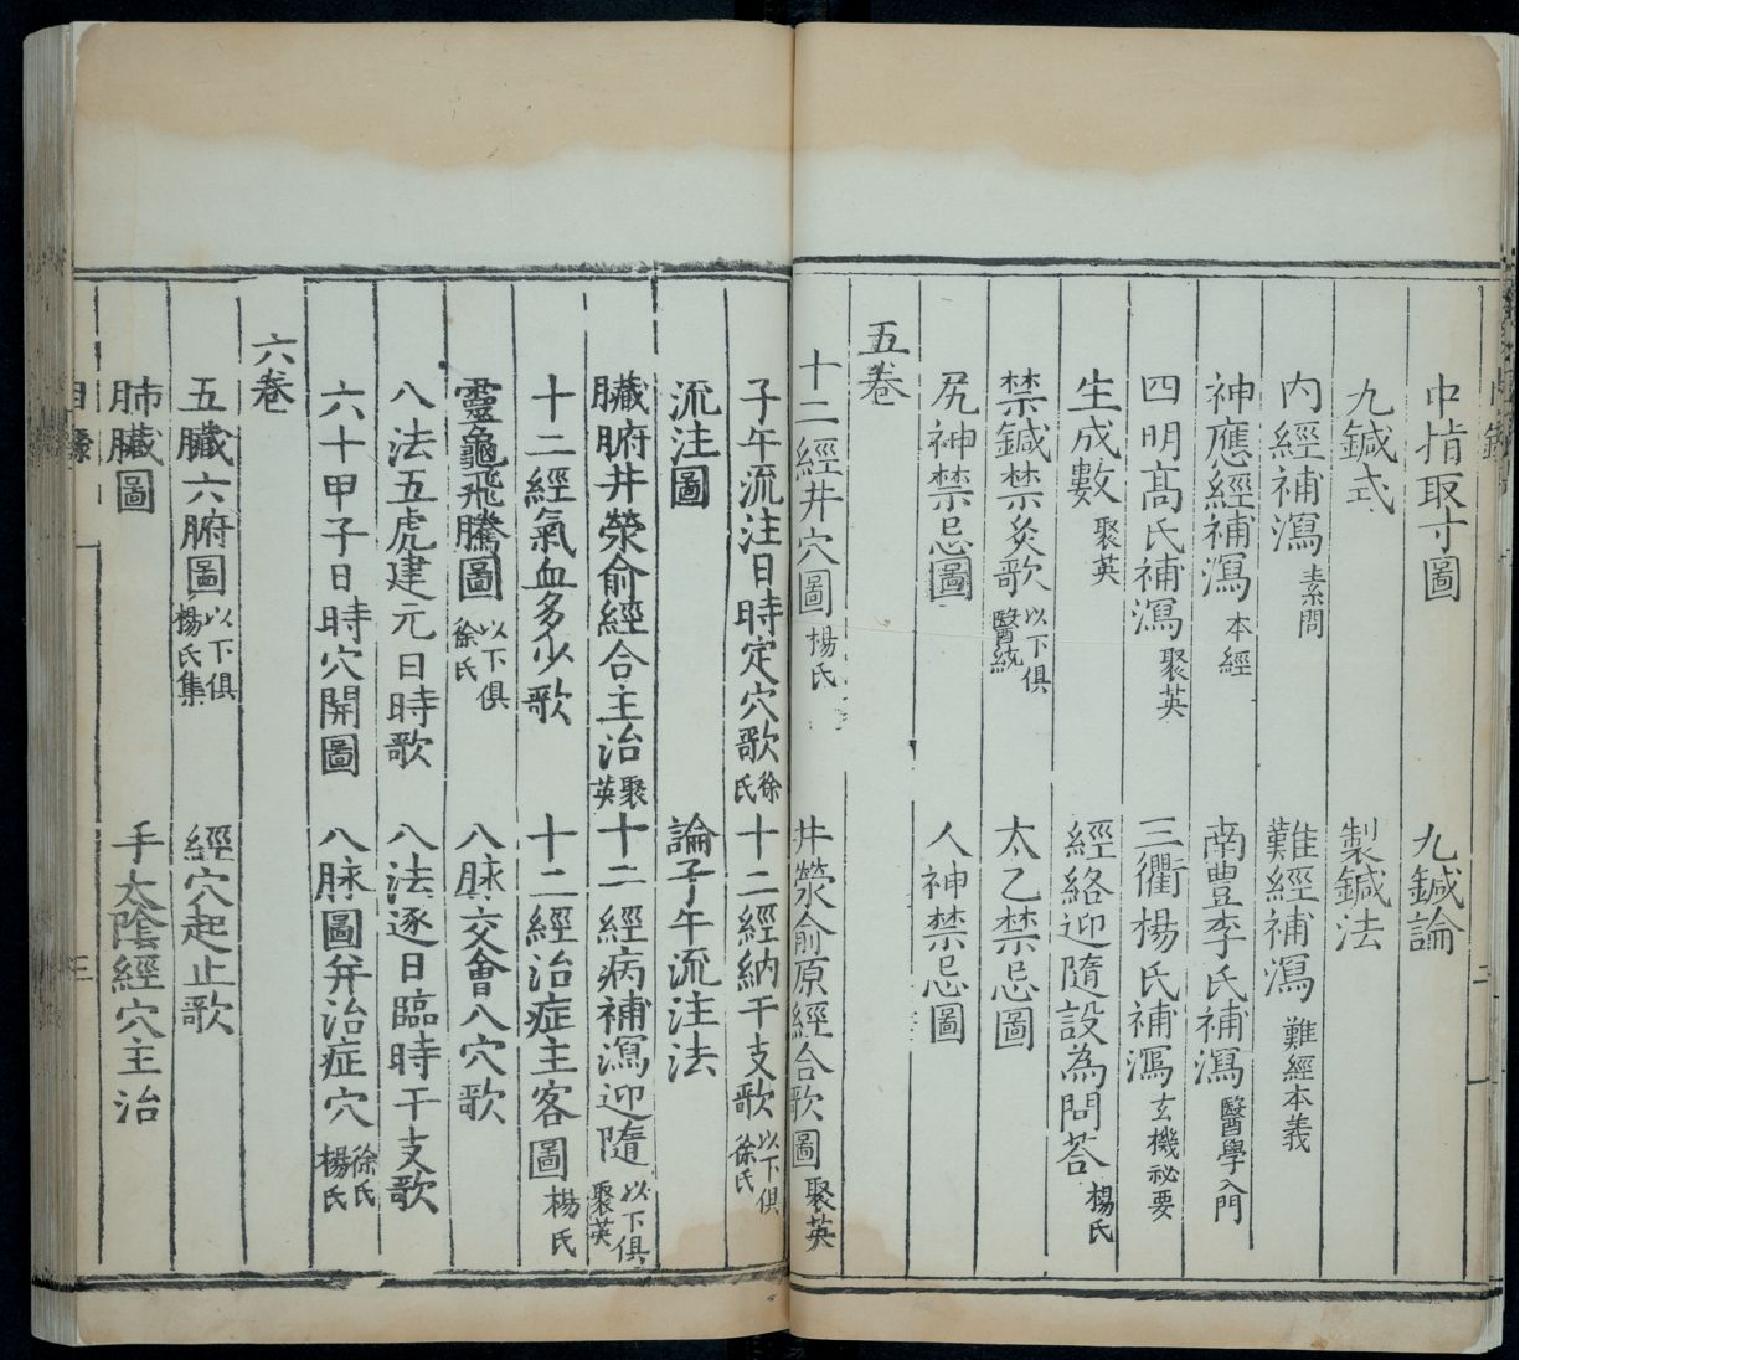 中指取寸圖　九鍼論
九鍼式　製鍼法
内經補瀉 素問　難經補瀉 難經本義
神應經補瀉 本經　南豊李氏補瀉 醫學入門
四明髙氏補瀉 聚英　三衢楊氏補瀉 玄機祕要
生成數 聚英　經絡迎隨設為問荅 楊氏
禁鍼禁灸歌 以下俱醫統　太乙禁忌圖
尻神禁忌圖　人神禁忌圖
五卷
十二經井穴圖 楊氏　井滎俞原經合歌圖 聚英
子午流注日時定穴歌 徐氏　十二經納干支歌 以下俱徐氏
流注圖　論子午流注法
臟腑井滎俞經合主治 聚英　十二經病補瀉迎隨 以下俱聚英
十二經氣血多少歌　十二經治症主客圖 楊氏
靈龜飛騰圖 以下俱徐氏　八脉交會八穴歌
八法五虎建元日時歌　八法逐日臨時干支歌
六十甲子日時穴開圖　八脉圖并治症穴 徐氏楊氏
六卷
五臟六腑圖 以下俱楊氏集　經穴起止歌
肺臟圖　手太陰經穴主治
目錄
三